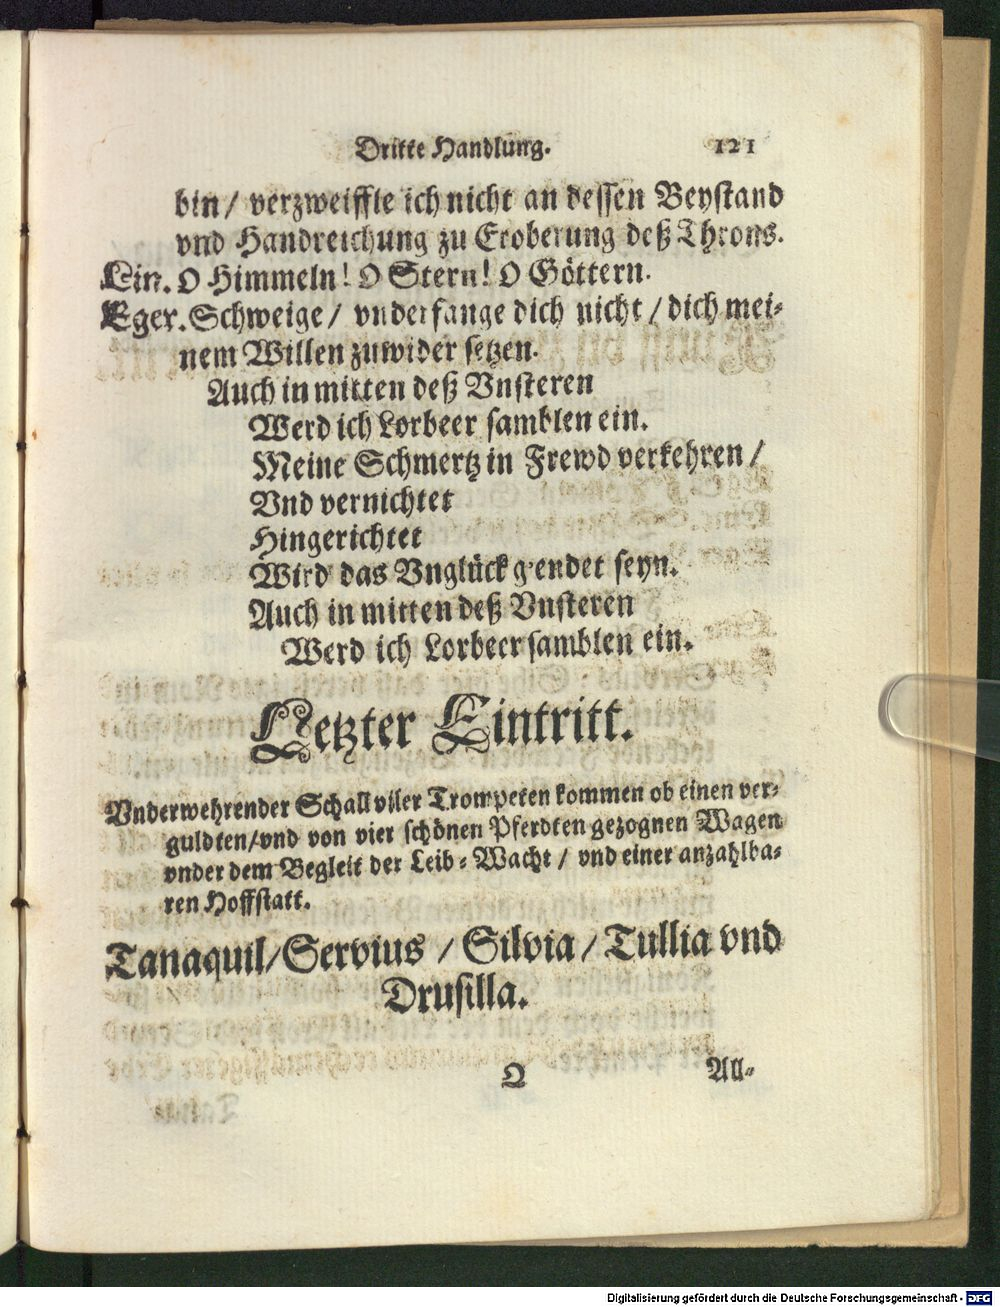 Dritte Handlung. 121
bin / verzweiffle ich nicht an dessen Beystand
vnd Handreichung zu Eroberung deß Throns.
Lin. O Himmeln! O Stern! O Göttern.
Eger. Schweige / vnderfange dich nicht / dich mei-
nem Willen zuwider setzen.
Auch in mitten deß Vnsteren
Werd ich Lorbeer samblen ein.
Meine Schmertz in Frewd verkehren /
Vnd vernichtet
Hingerichtet
Wird das Vnglück g'endet seyn.
Auch in mitten deß Vnsteren
Werd ich Lorbeer samblen ein.
Letzter Eintritt.
Vnderwehrender Schall viler Trompeten kommen ob einen ver-
guldten / vnd von vier schönen Pferdten gezognen Wagen
vnder dem Begleit der Leib-Wacht / vnd einer anzahlba-
ren Hoffstatt.
Tanaquil / Servius / Silvia / Tullia vnd
Drusilla.
Q All-
Digitalisierung gefördert durch die Deutsche Forschungsgemeinschaft - DFG